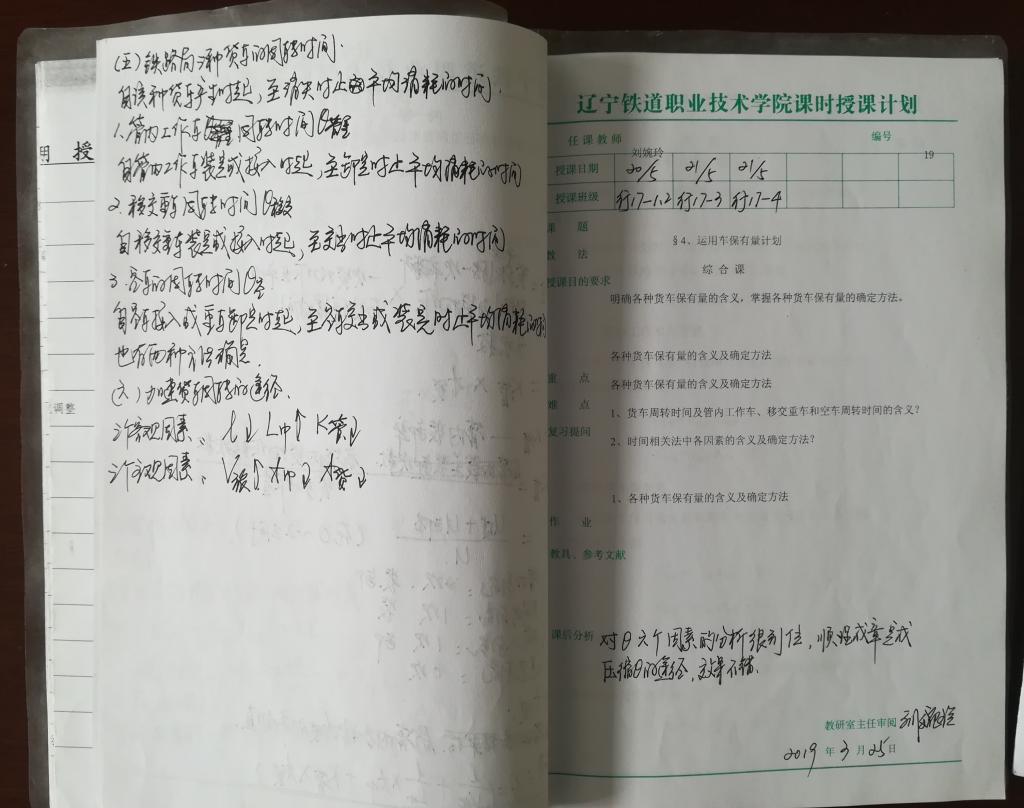 用 授
调整
(五)铁路局3种货车的周转时间.
自该种货车产生时起,至消失时止的平均消耗的时间.
1.管内工作车周转时间θ管内
自管内工作车装完或接入时起,至卸完时止平均消耗的时间
2.移交重车周转时间θ移交
自移交重车装完或接入时起,至交出时止平均消耗的时间
3.空车的周转时间θ空
自空车接入或重车卸完时起,至空车交出或装完时止平均消耗的时间
也有两种方法确定.
(六)加速货车周转的途径.
3个客观因素: l↓ L中↑ K管↓
3个主观因素: V旅↑ t中↓ t货↓
辽宁铁道职业技术学院课时授课计划
任课教师 刘婉玲 编号
19
授课日期 20/5 21/5 21/5
授课班级 行17-1.2 行17-3 行17-4
课 题 §4、运用车保有量计划
教 法 综合课
授课目的要求
明确各种货车保有量的含义,掌握各种货车保有量的确定方法。
各种货车保有量的含义及确定方法
重 点 各种货车保有量的含义及确定方法
难 点 1、货车周转时间及管内工作车、移交重车和空车周转时间的含义?
复习提问 2、时间相关法中各因素的含义及确定方法?
1、各种货车保有量的含义及确定方法
作 业
教具、参考文献
课后分析 对θ六个因素的分析很到位,顺理成章完成
压缩θ的途径,效果不错.
教研室主任审阅 刘婉玲
2019 年 3 月 25 日